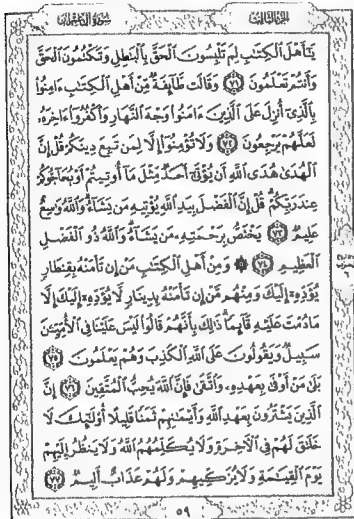 الجزء الثالث سورة آل عمران
يَٰٓأَهۡلَ ٱلۡكِتَٰبِ لِمَ تَلۡبِسُونَ ٱلۡحَقَّ بِٱلۡبَٰطِلِ وَتَكۡتُمُونَ ٱلۡحَقَّ
وَأَنتُمۡ تَعۡلَمُونَ ٧١ وَقَالَت طَّآئِفَةٞ مِّنۡ أَهۡلِ ٱلۡكِتَٰبِ ءَامِنُواْ
بِٱلَّذِيٓ أُنزِلَ عَلَى ٱلَّذِينَ ءَامَنُواْ وَجۡهَ ٱلنَّهَارِ وَٱكۡفُرُوٓاْ ءَاخِرَهُۥ
لَعَلَّهُمۡ يَرۡجِعُونَ ٧٢ وَلَا تُؤۡمِنُوٓاْ إِلَّا لِمَن تَبِعَ دِينَكُمۡ قُلۡ إِنَّ
ٱلۡهُدَىٰ هُدَى ٱللَّهِ أَن يُؤۡتَىٰٓ أَحَدٞ مِّثۡلَ مَآ أُوتِيتُمۡ أَوۡ يُحَآجُّوكُمۡ
عِندَ رَبِّكُمۡۗ قُلۡ إِنَّ ٱلۡفَضۡلَ بِيَدِ ٱللَّهِ يُؤۡتِيهِ مَن يَشَآءُۗ وَٱللَّهُ وَٰسِعٌ
عَلِيمٞ ٧٣ يَخۡتَصُّ بِرَحۡمَتِهِۦ مَن يَشَآءُۗ وَٱللَّهُ ذُو ٱلۡفَضۡلِ
ٱلۡعَظِيمِ ٧٤ ۞ وَمِنۡ أَهۡلِ ٱلۡكِتَٰبِ مَنۡ إِن تَأۡمَنۡهُ بِقِنطَارٖ
يُؤَدِّهِۦٓ إِلَيۡكَ وَمِنۡهُم مَّنۡ إِن تَأۡمَنۡهُ بِدِينَارٖ لَّا يُؤَدِّهِۦٓ إِلَيۡكَ إِلَّا
مَا دُمۡتَ عَلَيۡهِ قَآئِمٗاۗ ذَٰلِكَ بِأَنَّهُمۡ قَالُواْ لَيۡسَ عَلَيۡنَا فِي ٱلۡأُمِّيِّـۧنَ
سَبِيلٞ وَيَقُولُونَ عَلَى ٱللَّهِ ٱلۡكَذِبَ وَهُمۡ يَعۡلَمُونَ ٧٥
بَلَىٰۚ مَنۡ أَوۡفَىٰ بِعَهۡدِهِۦ وَٱتَّقَىٰ فَإِنَّ ٱللَّهَ يُحِبُّ ٱلۡمُتَّقِينَ ٧٦ إِنَّ
ٱلَّذِينَ يَشۡتَرُونَ بِعَهۡدِ ٱللَّهِ وَأَيۡمَٰنِهِمۡ ثَمَنٗا قَلِيلًا أُوْلَٰٓئِكَ لَا
خَلَٰقَ لَهُمۡ فِي ٱلۡأٓخِرَةِ وَلَا يُكَلِّمُهُمُ ٱللَّهُ وَلَا يَنظُرُ إِلَيۡهِمۡ
يَوۡمَ ٱلۡقِيَٰمَةِ وَلَا يُزَكِّيهِمۡ وَلَهُمۡ عَذَابٌ أَلِيمٞ ٧٧
٥٩